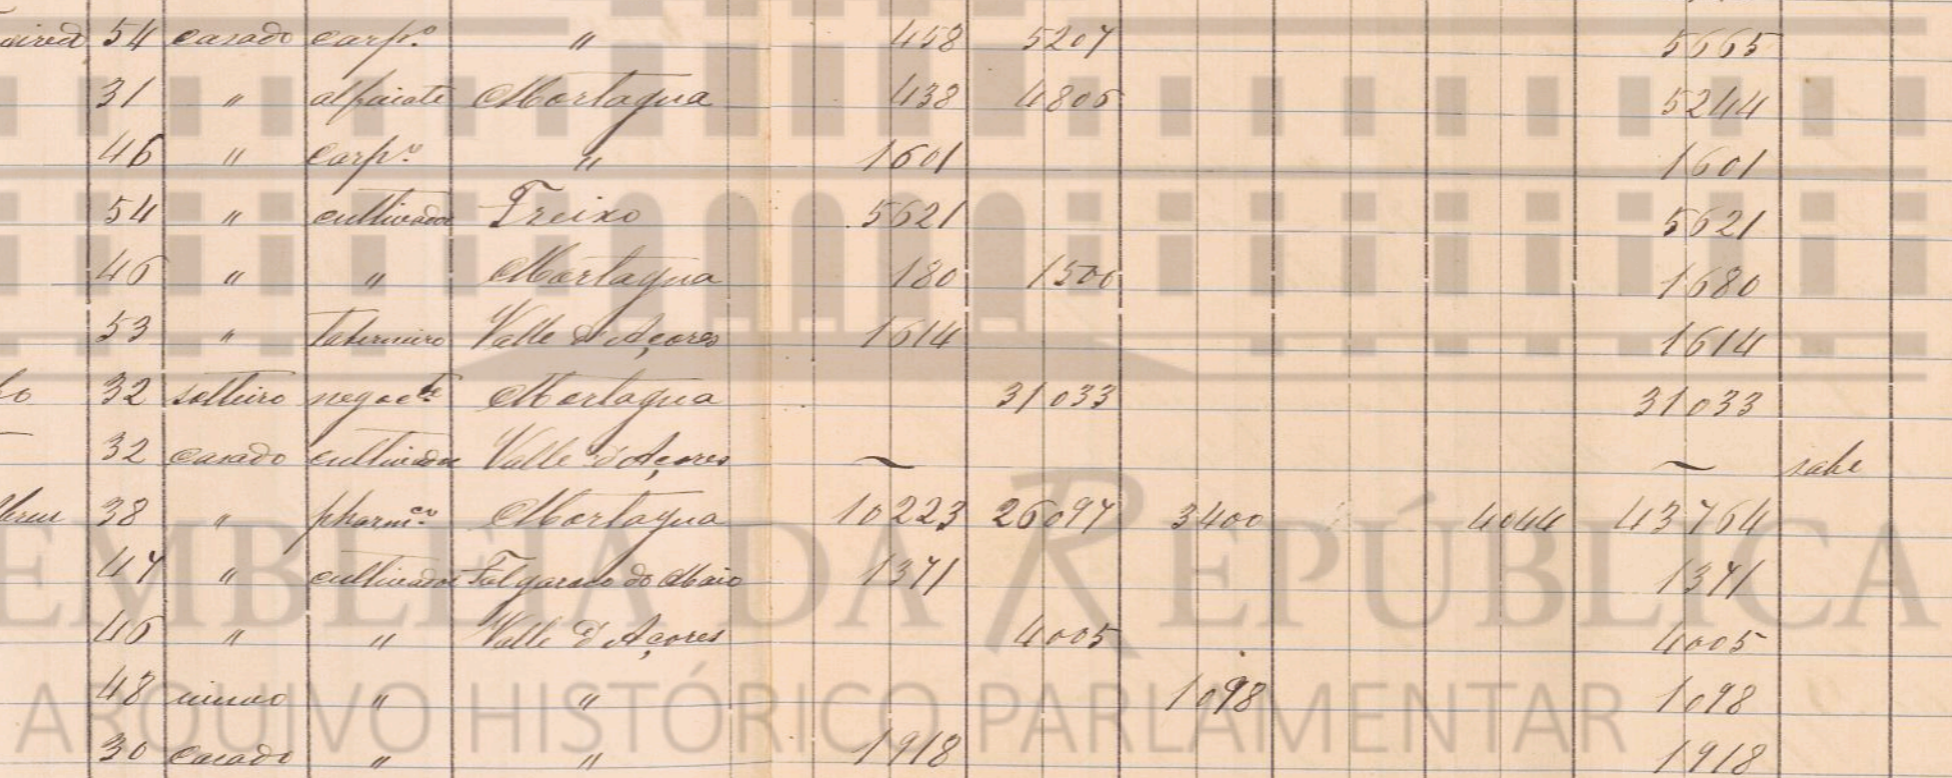 54 casado carp.º " 458 5207 5665
31 " alfaiate Mortagua 438 4806 5244
46 " carp.º " 1601 1601
54 " cultivador Freixo 5621 5621
46 " " Mortagua 180 1500 1680
53 " taberneiro Valle d'Açores 1614 1614
32 solteiro negoc.te Mortagua 31033 31033
32 casado cultivador Valle d'Açores ~ ~ sabe
38 " pharm.co Mortagua 10223 26097 3400 4044 43764
47 " cultivador do Maio 1371 1371
46 " " Valle d'Açores 4005 4005
48 viuvo " " 1098 1098
30 casado " " 1918 1918
EMBLEIA DA REPÚBLICA
ARQUIVO HISTÓRICO PARLAMENTAR